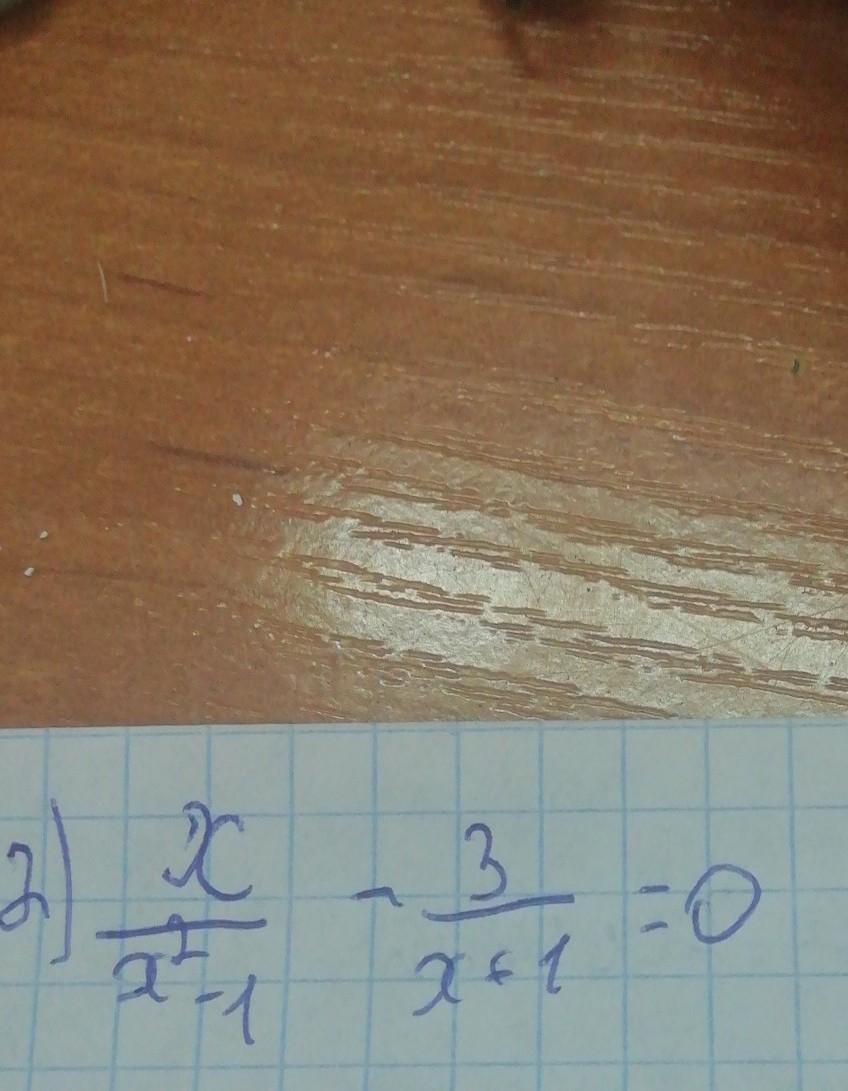 2) x/(x²-1) - 3/(x+1) = 0